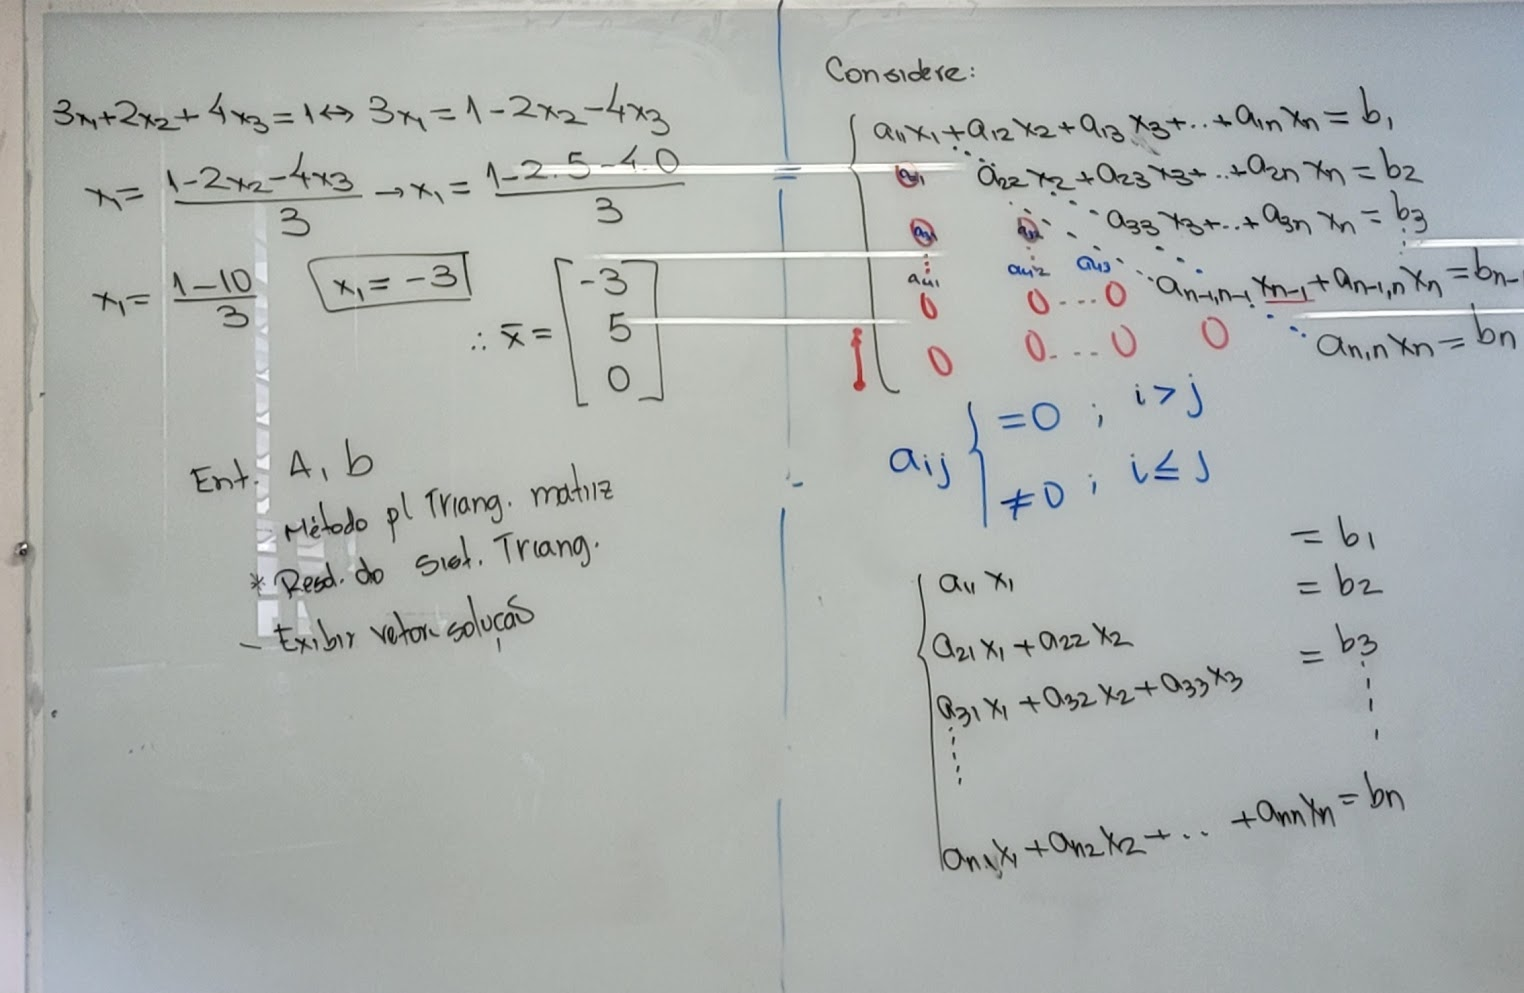 3x₁+2x₂+4x₃=1 ↔ 3x₁=1-2x₂-4x₃
x₁= (1-2x₂-4x₃)/3 → x₁= (1-2.5-4.0)/3
x₁= (1-10)/3   x₁=-3
∴ x̄ = [-3
5
0]
Ent. A, b
- Método p/ Triang. matriz
* Resol. do Sist. Triang.
- Exibir vetor solução
Considere:
a₁₁x₁+a₁₂x₂+a₁₃x₃+...+a₁ₙxₙ=b₁
a₂₁ a₂₂x₂+a₂₃x₃+...+a₂ₙxₙ=b₂
a₃₁ a₃₂ a₃₃x₃+...+a₃ₙxₙ=b₃
a₄₁ a₄₂ a₄₃
0 0...0 aₙ₋₁,ₙ₋₁xₙ₋₁+aₙ₋₁,ₙxₙ=bₙ₋
0 0...0 0 aₙ,ₙxₙ=bₙ
aᵢⱼ { =0 ; i>j
≠0 ; i≤j
a₁₁x₁ =b₁
a₂₁x₁+a₂₂x₂ =b₂
a₃₁x₁+a₃₂x₂+a₃₃x₃ =b₃
aₙ₁x₁+aₙ₂x₂+...+aₙₙxₙ=bₙ